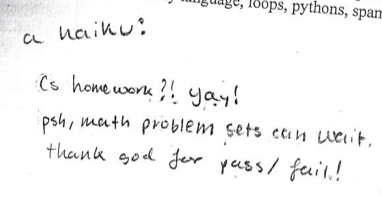 language, loops, pythons, span
a haiku:
Cs homework?! yay!
psh, math problem sets can wait.
thank god for pass/fail!